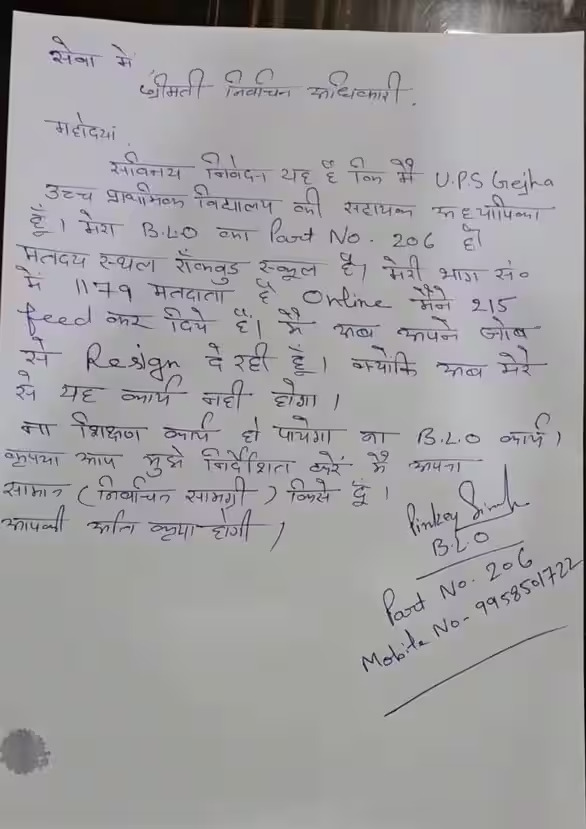 सेवा में
श्रीमती निर्वाचन अधिकारी.
महोदया,
सविनय निवेदन यह है कि मैं U.P.S Gejha
उच्च प्राथमिक विद्यालय की सहायक अध्यापिका
हूँ। मेरा B.L.O का Part No. 206 है।
मतदय स्थल रॉकवुड स्कूल है। मेरी भाग सं०
में 1179 मतदाता है Online मैंने 215
feed कर दिये हैं। मैं अब अपने जोब
से Resign दे रही हूँ। क्योंकि अब मेरे
से यह कार्य नही होगा।
ना शिक्षण कार्य हो पायेगा ना B.L.O कार्य।
कृपया आप मुझे निर्देशित करें मैं अपना
सामान (निर्वाचन सामग्री) किसे दूँ।
आपकी अति कृपा होगी।
Pinky Singh
B.L.O
Part No. 206
Mobile No- 9958501722